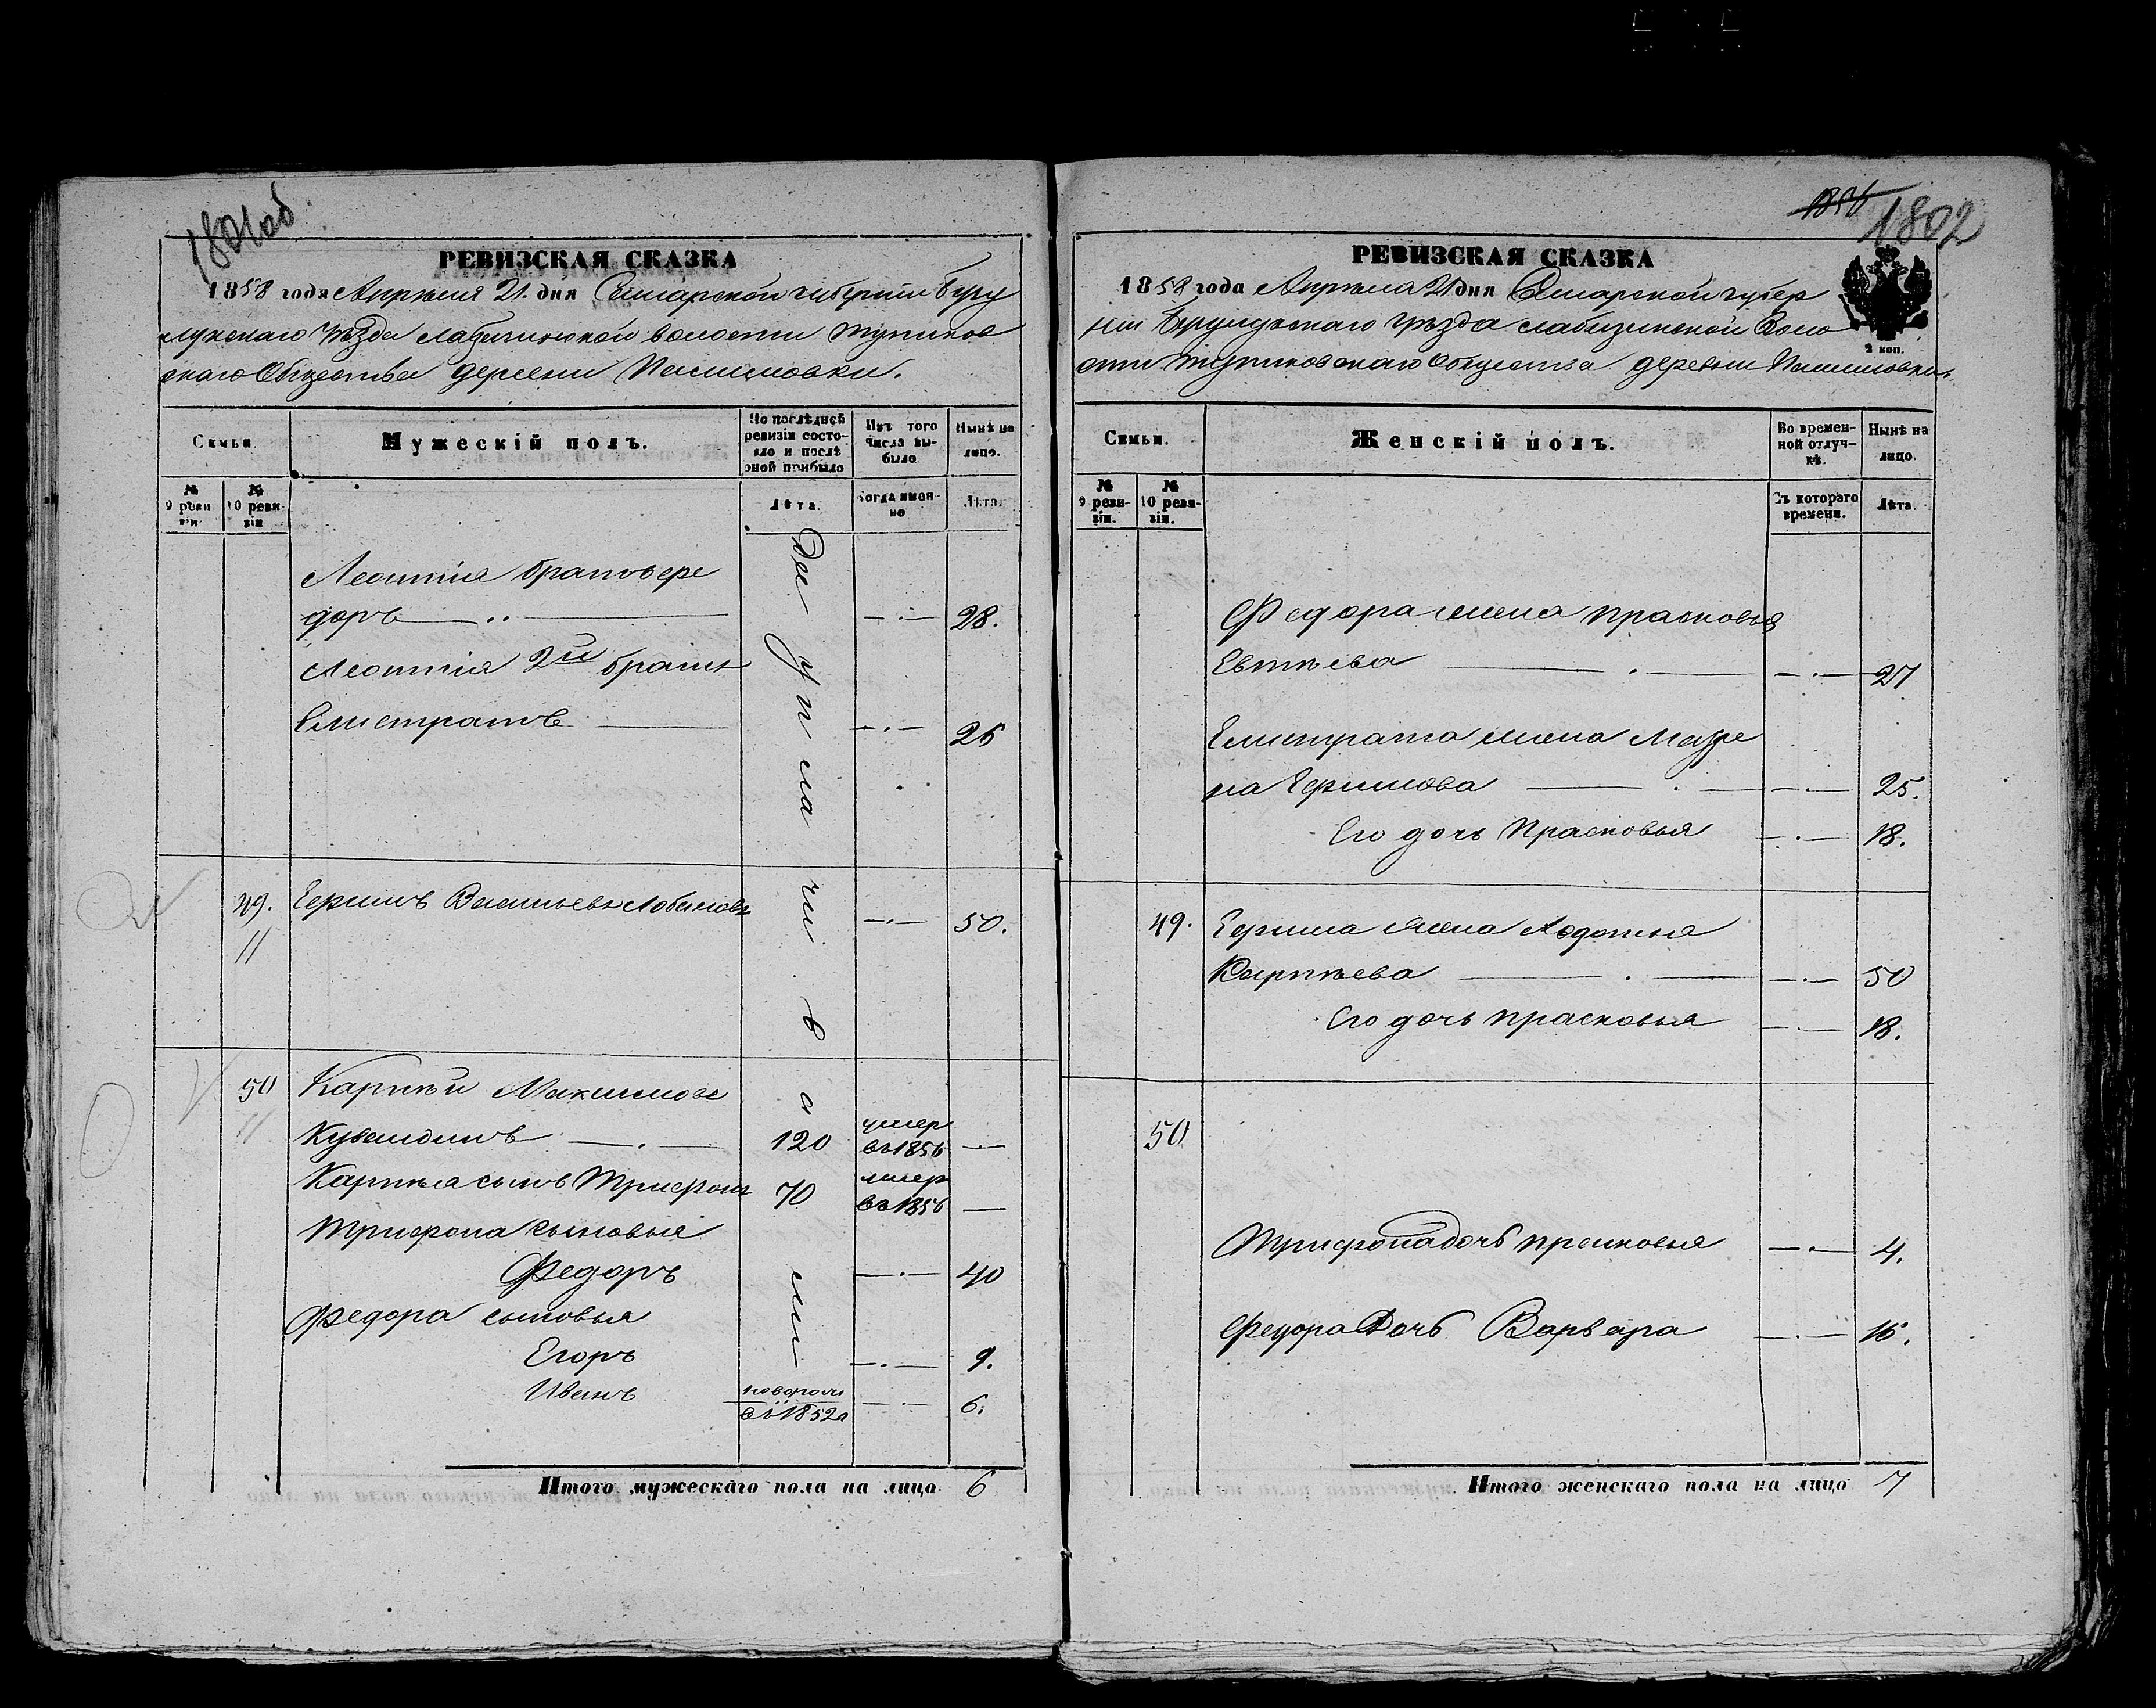 1801об
РЕВИЗСКАЯ СКАЗКА
1858 года Апреля 21. дня Самарской губернии Бугу
луcкаго уѣзда волости Тупиков
скаго Общества деревни
Семьи. Мужескій полъ. По послѣдней ревизіи состояло и послѣ оной прибыло Изъ того числа выбыло Нынѣ на лицо.
№ 9 ревизіи № 10 ревизіи Лѣта. Когда именно Лѣта.
Леонтія братъ Фе
доръ —·— 28.
Леонтія 2й братъ
Елистратъ —·— 26
49. Ермилъ Васильевъ Лобановъ —·— 50.
50 Карпѣй Максимовъ
120 умер въ 1856 —
Карпѣя сынъ Трифонъ 70 умер въ 1856 —
Трифона сыновья
Федоръ —·— 40
Федора сыновья
Егоръ —·— 9.
Иванъ новорож въ 1852 —·— 6.
Итого мужескаго пола на лицо 6
1856
1802
РЕВИЗСКАЯ СКАЗКА
1858 года Апреля 21 дня Самарской губер
нии уѣзда Воло
сти Тупиковскаго Общества деревни
2 коп.
Семьи. Женскій полъ. Во временной отлучкѣ. Нынѣ на лицо.
№ 9 ревизіи. № 10 ревизіи. Съ котораго времени. Лѣта.
Федора жена Прасковья
Евтѣева —·— 27
Елистрата жена Матре
на Ермилова —·— 25.
Его дочь Прасковья —·— 18.
49. Ермила жена Авдотья
Карпѣева —·— 50
Его дочь Прасковья —·— 18.
50
Трифона дочь Прасковья —·— 4.
Федора Дочь Варвара —·— 16.
Итого женскаго пола на лицо 7